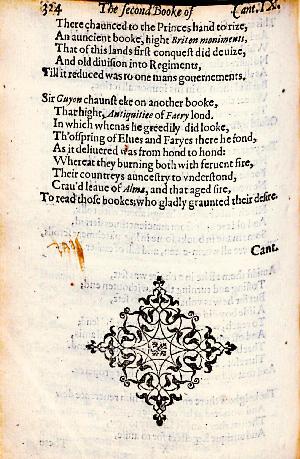 324 The second Booke of Cant. IX.
There chaunced to the Princes hand to rize,
An auncient booke, hight Briten moniments,
That of this lands first conquest did deuize,
And old diuision into Regiments,
Till it reduced was to one mans gouernements.
Sir Guyon chaunst eke on another booke,
That hight, Antiquitiee of Faery lond.
In which whenas he greedily did looke,
Th'ofspring of Elues and Faryes there he fond,
As it deliuered was from hond to hond:
Whereat they burning both with feruent fire,
Their countreys auncestry to vnderstond,
Crau'd leaue of Alma, and that aged sire,
To read those bookes; who gladly graunted their desire.
Cant.